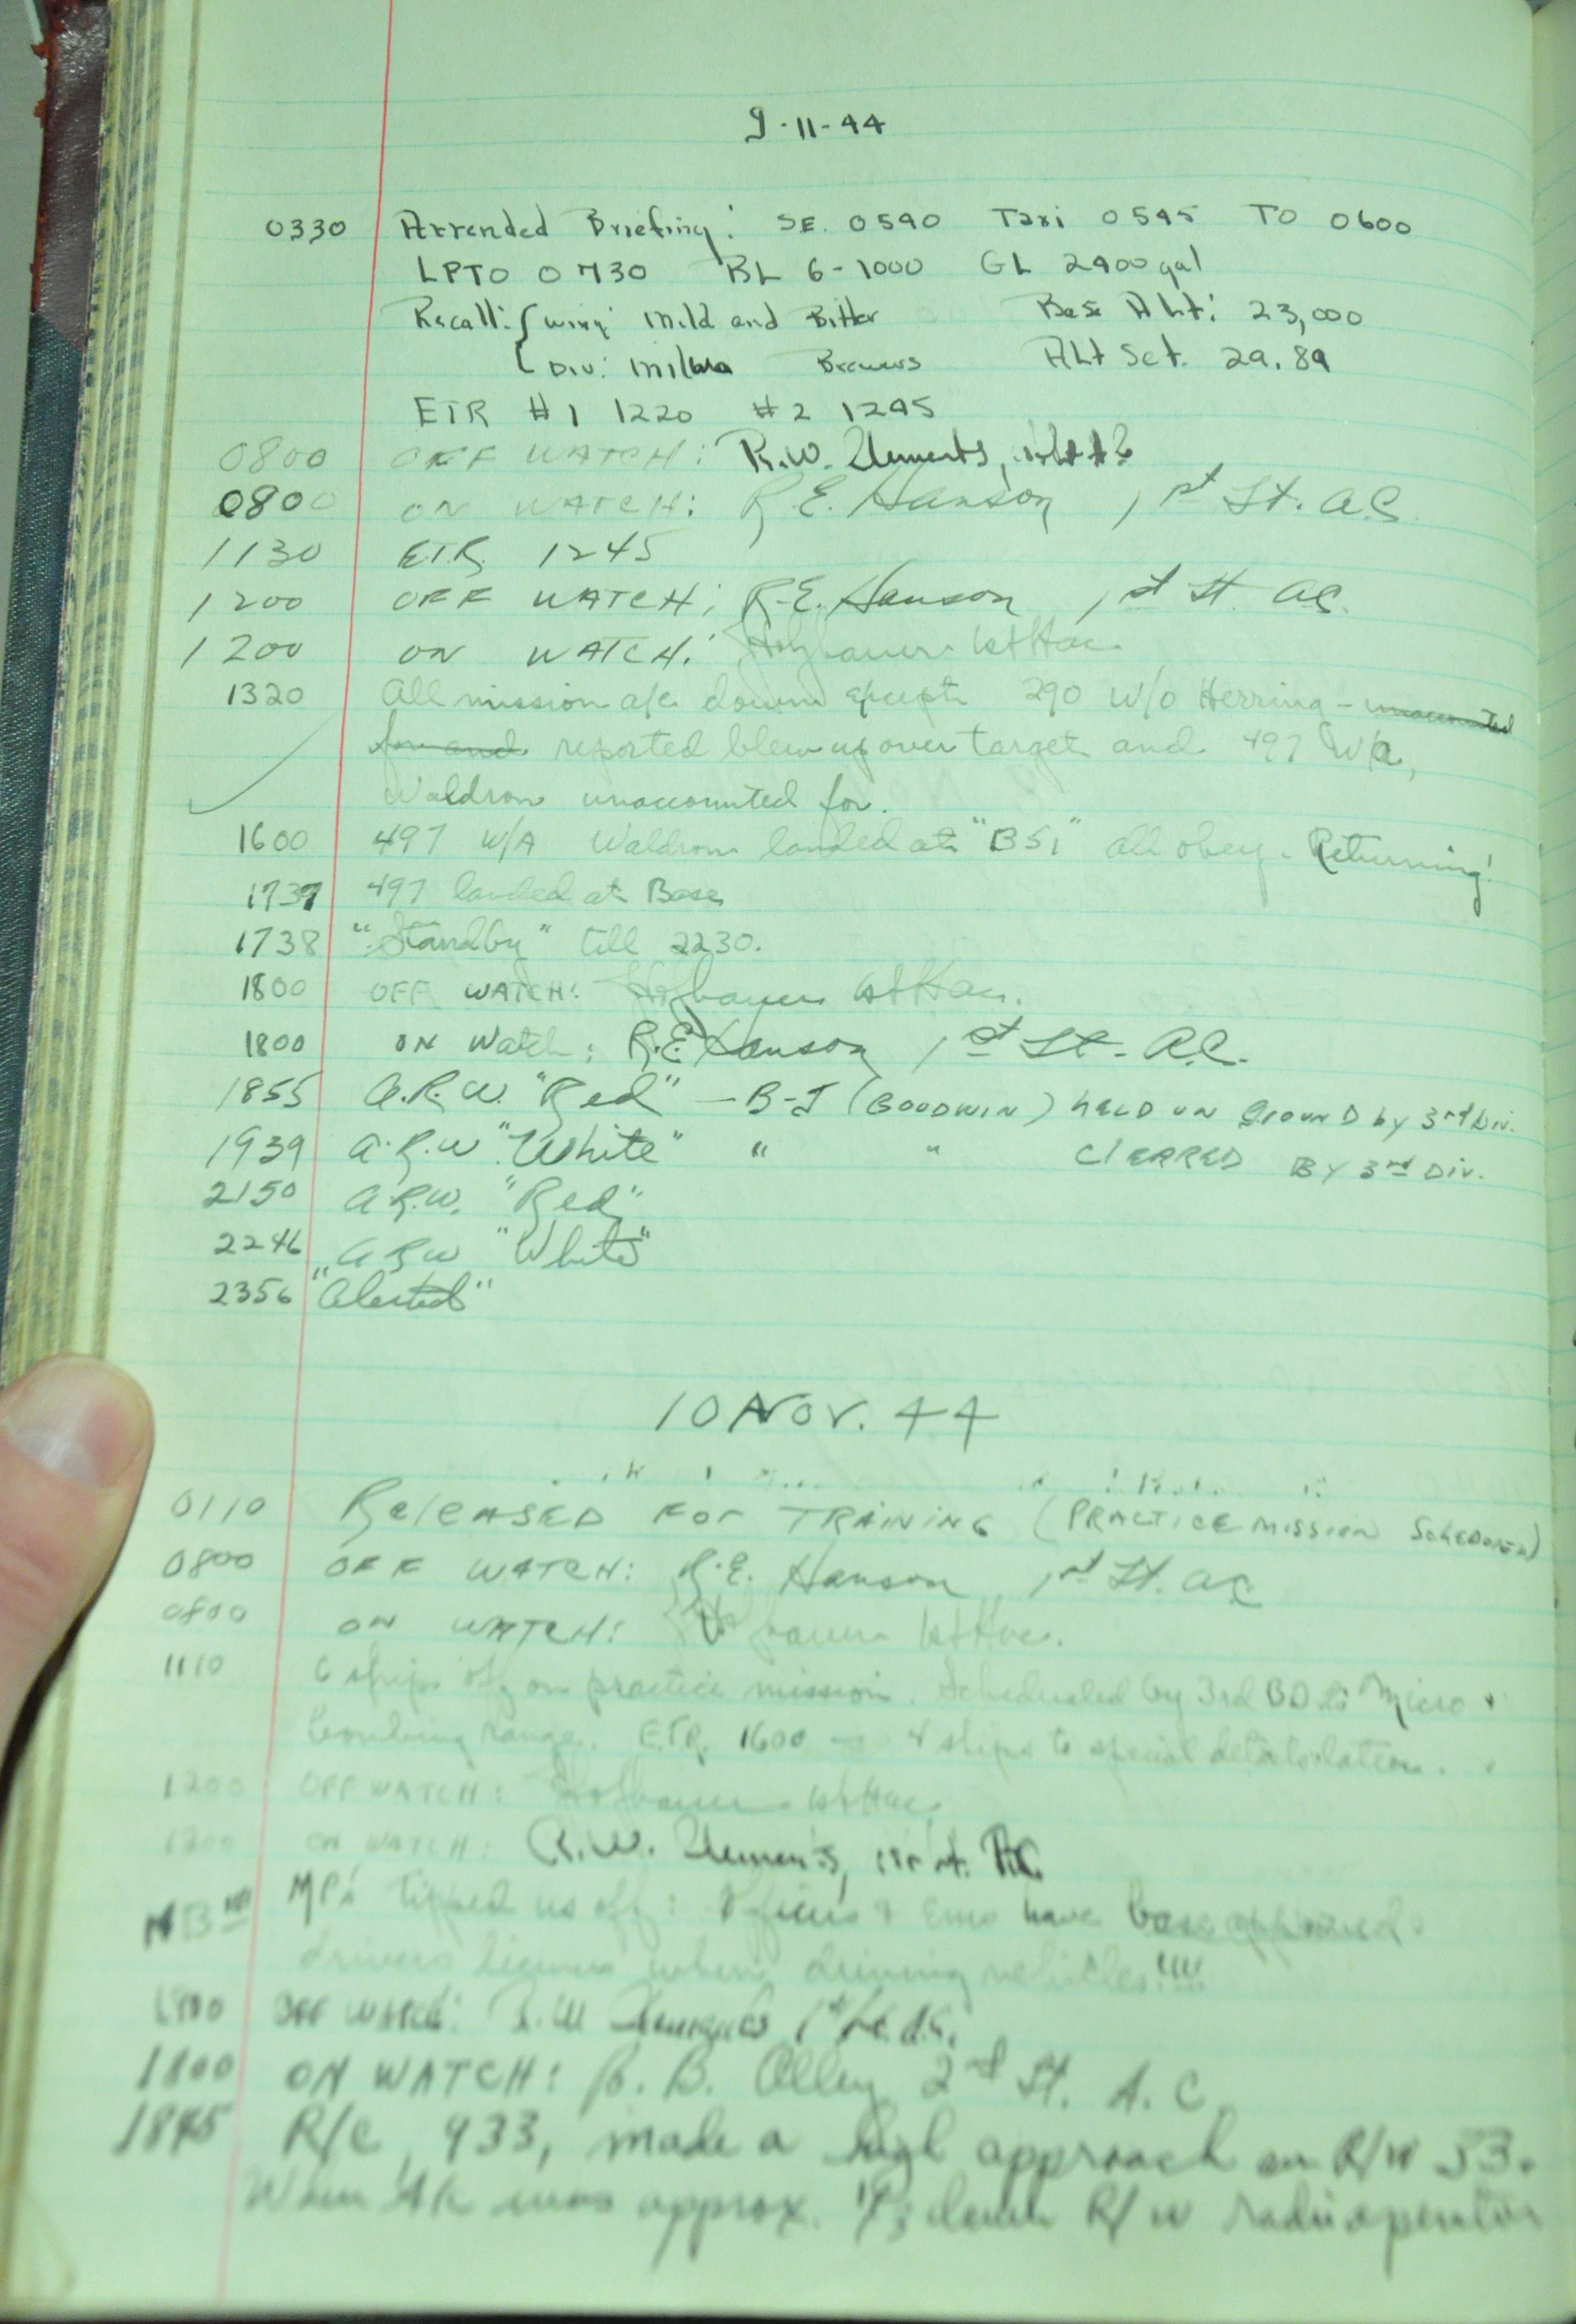 9-11-44
0330 Attended Briefing: SE. 0540 Taxi 0545 TO 0600
LPTO 0730 BL 6-1000 GL 2400 gal
Recall: { Wing: Mild and Bitter Base Alt: 23,000
Div: Brewers Alt Set. 29.89
ETR #1 1220 #2 1245
0800 OFF WATCH: R.W. Clements,
0800 ON WATCH: R.E. Hanson 1st Lt. A.C.
1130 ETR 1245
1200 OFF WATCH; R.E. Hanson 1st Lt. AC.
1200 ON WATCH:
1320 All mission a/c down except 290 W/O Herring - unaccounted
for and reported blew up over target and 497 W/A,
Waldron unaccounted for.
1600 497 W/A Waldron landed at "B51" all okey. Returning!
1737 497 landed at Base
1738 "Standby" till 2230.
1800 OFF WATCH:
1800 ON Watch: R.E. Hanson 1st Lt. A.C.
1855 A.R.W. "Red" - B-J (GOODWIN) HELD ON GROUND by 3rd Div.
1939 A.R.W. "White" " " CLEARED BY 3rd DIV.
2150 A.R.W. "Red"
2246 A.R.W "White"
2356 "Alerted"
10 NOV. 44
0110 RELEASED FOR TRAINING (PRACTICE MISSION SCHEDULED)
0800 OFF WATCH: R.E. Hanson 1st Lt. AC
0800 ON WATCH:
1110 6 ships off on practice mission. Scheduled by 3rd BD to
bombing range. ETR. 1600 - 4 ships to special
1200 OFF WATCH:
1200 ON WATCH: R.W. Clements, AC
NB MP's tipped us off: Officers & EMs have base approved
drivers license when driving vehicles!!!!
1800 OFF WATCH: R.W. Clements 1st Lt.
1800 ON WATCH: B. Olley 2nd Lt. A.C.
1845 933, made a high approach on R/W 33.
When A/C was approx. 1/3 down R/W radio operator